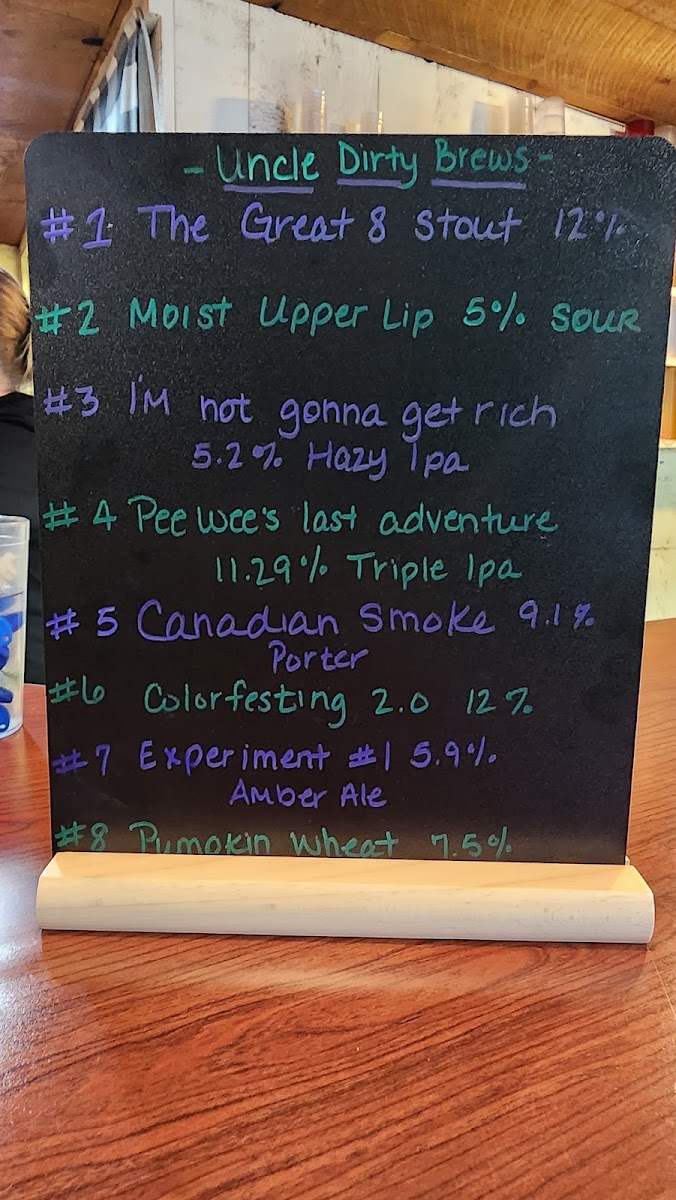 - Uncle Dirty Brews -
#1 The Great 8 Stout 12%
#2 Moist Upper Lip 5% SOUR
#3 I'M not gonna get rich
5.2% Hazy Ipa
#4 Pee wee's last adventure
11.29% Triple Ipa
#5 Canadian Smoke 9.1%
Porter
#6 Colorfesting 2.0 12%
#7 Experiment #1 5.9%
Amber Ale
#8 Pumpkin Wheat 7.5%